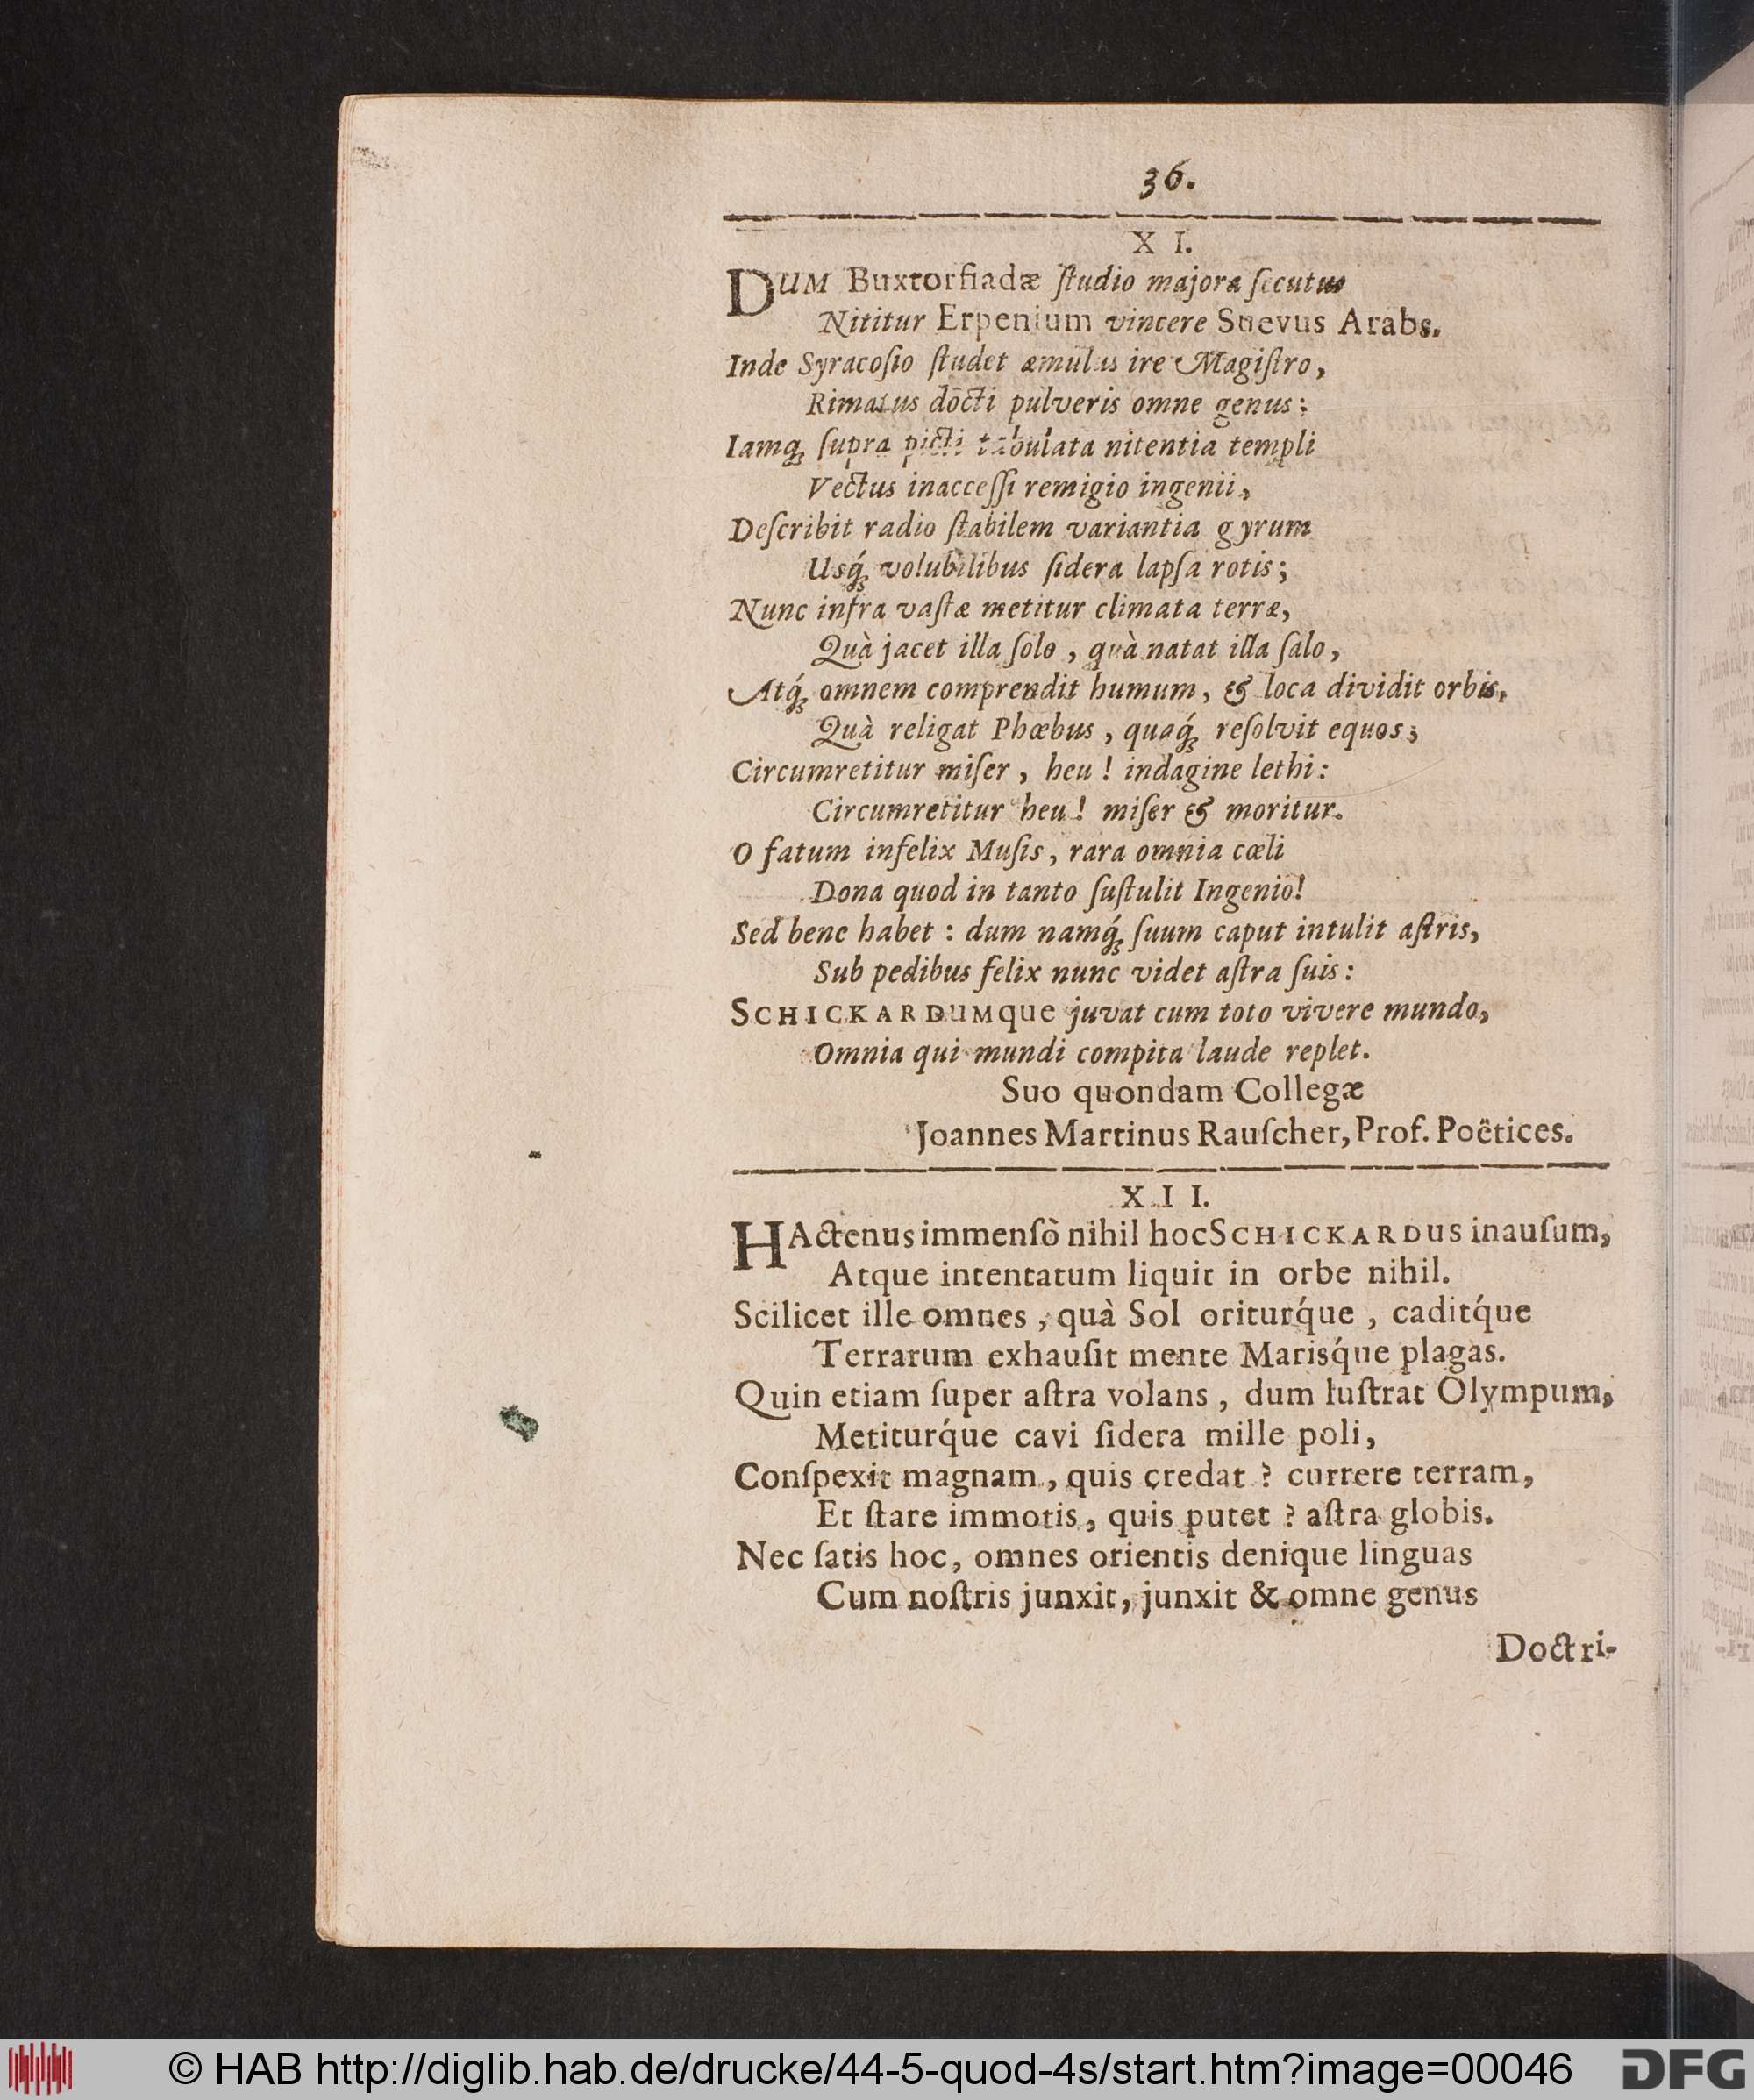 36.
X I.
DUM Buxtorfiadæ ſtudio majora ſecutus
Nititur Erpenium vincere Suevus Arabs.
Inde Syracoſio ſtudet æmulus ire Magiſtro,
Rimatus docti pulveris omne genus:
Iamq́; ſupra picti tabulata nitentia templi
Vectus inacceſſi remigio ingenii,
Deſcribit radio ſtabilem variantia gyrum
Usq́; volubilibus ſidera lapſa rotis;
Nunc infra vaſtæ metitur climata terræ,
Quà jacet illa ſolo, quà natat illa ſalo,
Atq́; omnem comprendit humum, & loca dividit orbis,
Quà religat Phœbus, quaq́; reſolvit equos;
Circumretitur miſer, heu! indagine lethi:
Circumretitur heu! miſer & moritur.
O fatum infelix Muſis, rara omnia cœli
Dona quod in tanto ſuſtulit Ingenio!
Sed bene habet: dum namq́; ſuum caput intulit aſtris,
Sub pedibus felix nunc videt aſtra ſuis:
SCHICKARDUMque juvat cum toto vivere mundo,
Omnia qui mundi compita laude replet.
Suo quondam Collegæ
Joannes Martinus Rauſcher, Prof. Poëtices.
X I I.
HActenus immenſò nihil hoc SCHICKARDUS inauſum,
Atque intentatum liquit in orbe nihil.
Scilicet ille omnes, quà Sol oriturq́ue, caditq́ue
Terrarum exhauſit mente Marisq́ue plagas.
Quin etiam ſuper aſtra volans, dum luſtrat Olympum,
Metiturq́ue cavi ſidera mille poli,
Conſpexit magnam, quis credat? currere terram,
Et ſtare immotis, quis putet? aſtra globis.
Nec ſatis hoc, omnes orientis denique linguas
Cum noſtris junxit, junxit & omne genus
Doctri-
© HAB http://diglib.hab.de/drucke/44-5-quod-4s/start.htm?image=00046
DFG